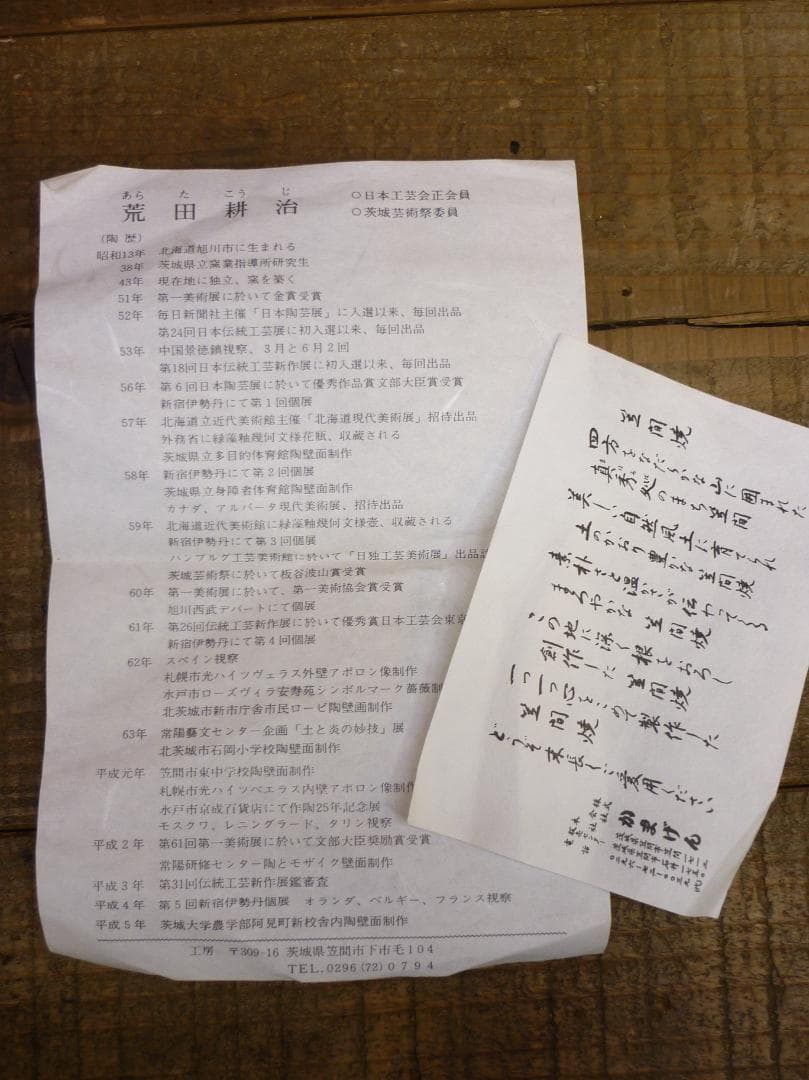 あら た こう じ
荒田耕治
○日本工芸会正会員
○茨城芸術祭委員
(陶 歴)
昭和13年 北海道旭川市に生まれる
38年 茨城県立窯業指導所研究生
43年 現在地に独立、窯を築く
51年 第一美術展に於いて金賞受賞
52年 毎日新聞社主催「日本陶芸展」に入選以来、毎回出品
第24回日本伝統工芸展に初入選以来、毎回出品
53年 中国景徳鎮視察、3月と6月2回
第18回日本伝統工芸新作展に初入選以来、毎回出品
56年 第6回日本陶芸展に於いて優秀作品賞文部大臣賞受賞
新宿伊勢丹にて第1回個展
57年 北海道立近代美術館主催「北海道現代美術展」招待出品
外務省に緑藻釉幾何文様花瓶、収蔵される
茨城県立多目的体育館陶壁面制作
58年 新宿伊勢丹にて第2回個展
茨城県立身障者体育館陶壁面制作
カナダ、アルバータ現代美術展、招待出品
59年 北海道近代美術館に緑藻釉幾何文様壺、収蔵される
新宿伊勢丹にて第3回個展
ハンブルグ工芸美術館に於いて「日独工芸美術展」出品
茨城芸術祭に於いて板谷波山賞受賞
60年 第一美術展に於いて、第一美術協会賞受賞
旭川西武デパートにて個展
61年 第26回伝統工芸新作展に於いて優秀賞日本工芸会東京
新宿伊勢丹にて第4回個展
62年 スペイン視察
札幌市光ハイツヴェラス外壁アポロン像制作
水戸市ローズヴィラ安寿苑シンボルマーク薔薇制
北茨城市新市庁舎市民ロービ陶壁画制作
63年 常陽藝文センター企画「土と炎の妙技」展
北茨城市石岡小学校陶壁面制作
平成元年 笠間市東中学校陶壁面制作
札幌市光ハイツベエラス内壁アポロン像制作
水戸市京成百貨店にて作陶25年記念展
モスクワ、レニングラード、タリン視察
平成2年 第61回第一美術展に於いて文部大臣奨励賞受賞
常陽研修センター陶とモザイク壁面制作
平成3年 第31回伝統工芸新作展鑑審査
平成4年 第5回新宿伊勢丹個展 オランダ、ベルギー、フランス視察
平成5年 茨城大学農学部阿見町新校舎内陶壁面制作
工房 〒309-16 茨城県笠間市下市毛104
TEL.0296(72)0794
笠間焼
四方をなだらかな山に囲まれた
真秀処のまち笠間
美しい自然風土に育てられ
土のかおり豊かな笠間焼
素朴さと温かさが伝わってくる
まろやかな笠間焼
この地に深く根をおろし
創作した笠間焼
一つ一つ心をこめて製作した
笠間焼
どうぞ末長しご愛用ください
株式会社 かまげん